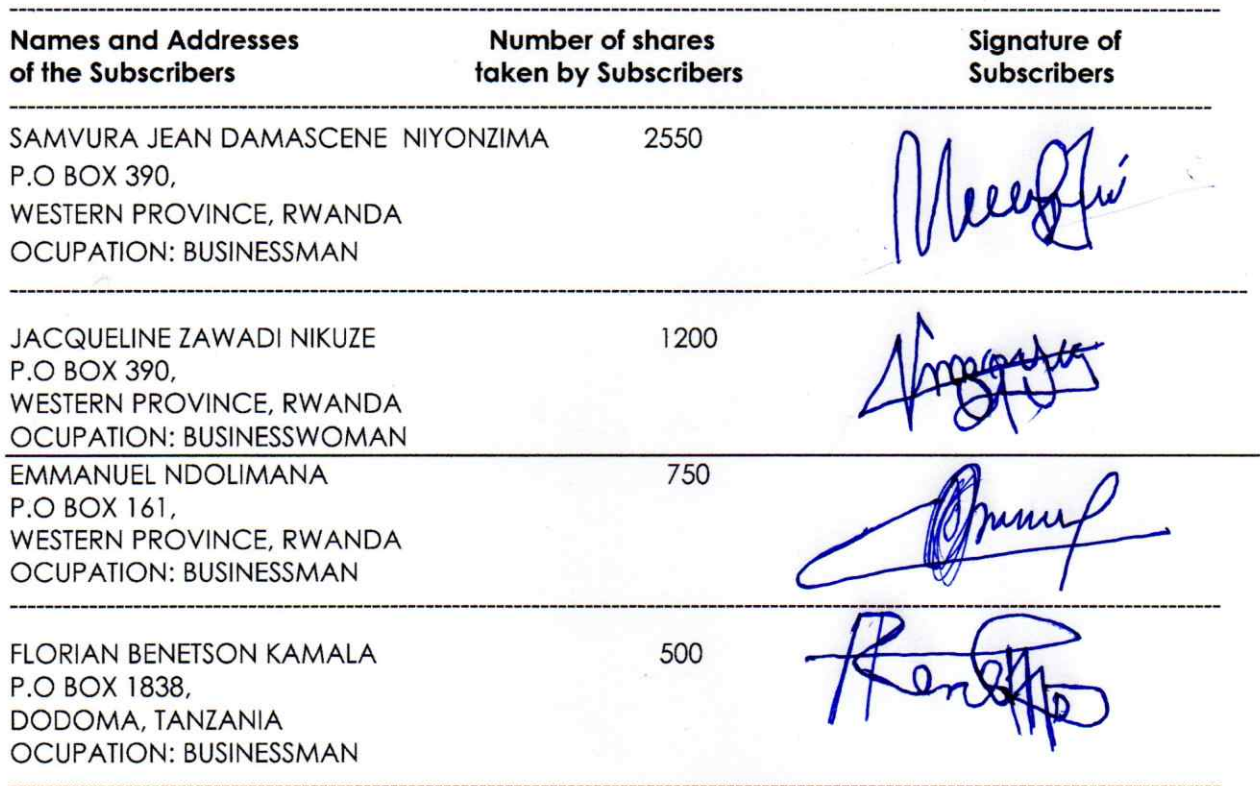 Names and Addresses of the Subscribers
Number of shares taken by Subscribers
Signature of Subscribers
SAMVURA JEAN DAMASCENE NIYONZIMA 2550
P.O BOX 390,
WESTERN PROVINCE, RWANDA
OCUPATION: BUSINESSMAN
JACQUELINE ZAWADI NIKUZE 1200
P.O BOX 390,
WESTERN PROVINCE, RWANDA
OCUPATION: BUSINESSWOMAN
EMMANUEL NDOLIMANA 750
P.O BOX 161,
WESTERN PROVINCE, RWANDA
OCUPATION: BUSINESSMAN
FLORIAN BENETSON KAMALA 500
P.O BOX 1838,
DODOMA, TANZANIA
OCUPATION: BUSINESSMAN